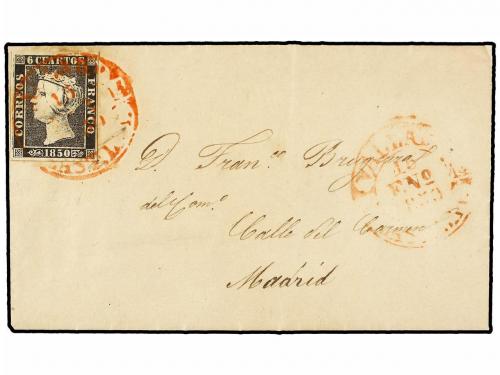 6 CUARTOS
CORREOS
FRANCO
1850
D. Fran.co
del Com.o
Calle del Carmen
Madrid
ENo